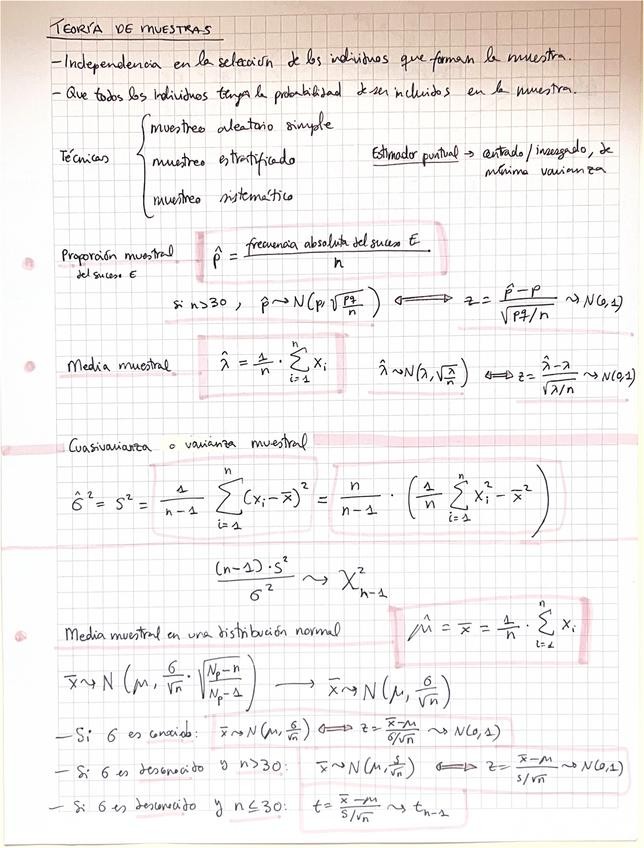 TEORÍA DE MUESTRAS
- Independencia en la selección de los individuos que forman la muestra.
- Que todos los individuos tengan la probabilidad de ser incluidos en la muestra.
Técnicas { muestreo aleatorio simple
muestreo estratificado
muestreo sistemático
Estimador puntual → centrado/insesgado, de
mínima varianza
Proporción muestral del suceso E
p̂ = frecuencia absoluta del suceso E / n
si n>30, p̂ ~> N(p, √(pq/n)) <=> z = (p̂ - p)/√(pq/n) ~> N(0,1)
Media muestral λ̂ = 1/n · Σ_{i=1}^{n} x_i λ̂ ~> N(λ, √(λ/n)) <=> z = (λ̂ - λ)/√(λ/n) ~> N(0,1)
Cuasivarianza o varianza muestral
σ̂² = S² = 1/(n-1) Σ_{i=1}^{n} (x_i - x̄)² = n/(n-1) · (1/n Σ_{i=1}^{n} x_i² - x̄²)
(n-1)·S²/σ² ~> X²_{n-1}
Media muestral en una distribución normal μ̂ = x̄ = 1/n · Σ_{i=1}^{n} x_i
x̄ ~> N(μ, σ/√n · √((N_p - n)/(N_p - 1))) → x̄ ~> N(μ, σ/√n)
- Si σ es conocido: x̄ ~> N(μ, σ/√n) <=> z = (x̄ - μ)/(σ/√n) ~> N(0,1)
- Si σ es desconocido y n>30: x̄ ~> N(μ, s/√n) <=> z = (x̄ - μ)/(s/√n) ~> N(0,1)
- Si σ es desconocido y n≤30: t = (x̄ - μ)/(s/√n) ~> t_{n-1}